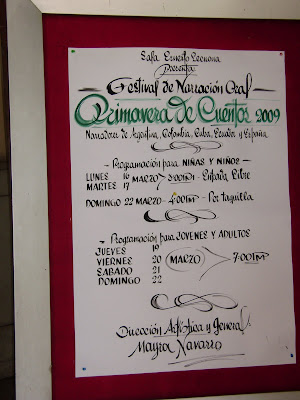 Sala Ernesto Lecuona
Presenta
Festival de Narración Oral
Primavera de Cuentos 2009
Narradores de Argentina, Colombia, Cuba, Ecuador y España
Programación para NIÑAS Y NIÑOS
LUNES 16 MARZO 3:00PM - Entrada Libre
MARTES 17
DOMINGO 22 MARZO - 4:00PM - Por taquilla
Programación para JOVENES Y ADULTOS
JUEVES 19
VIERNES 20 MARZO 7:00PM
SABADO 21
DOMINGO 22
Dirección Artística y General:
Mayra Navarro